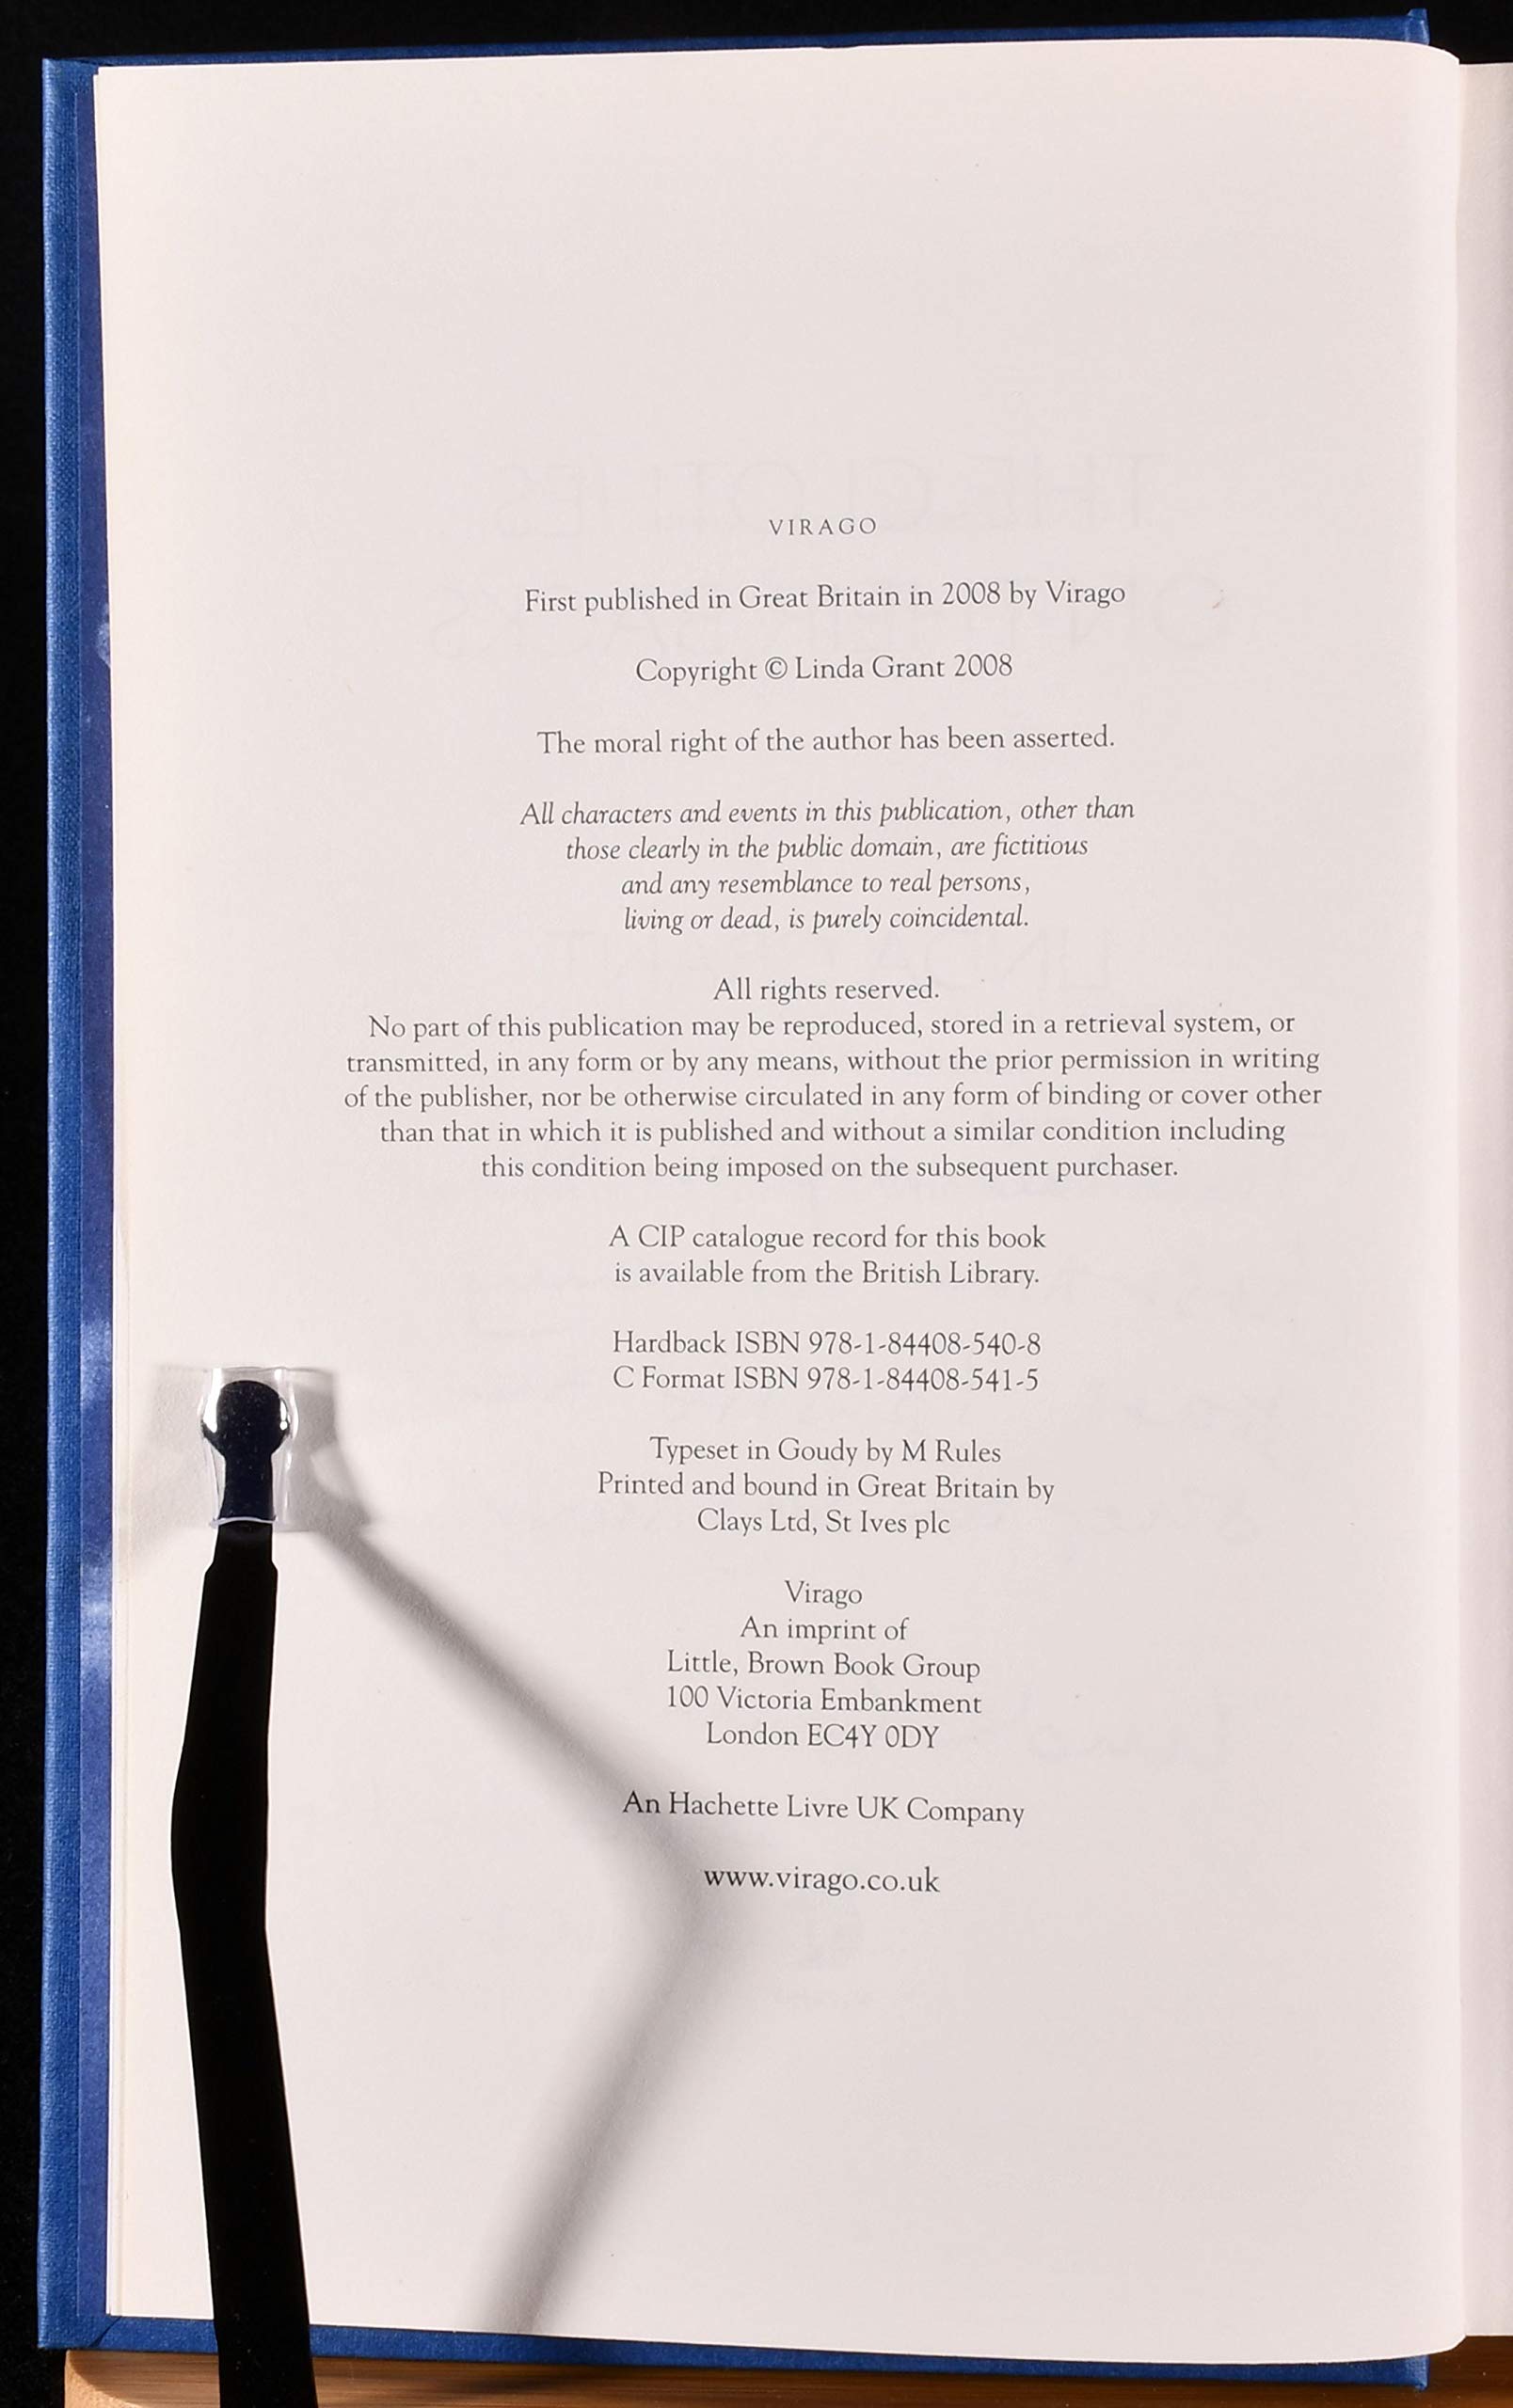 VIRAGO
First published in Great Britain in 2008 by Virago
Copyright © Linda Grant 2008
The moral right of the author has been asserted.
All characters and events in this publication, other than
those clearly in the public domain, are fictitious
and any resemblance to real persons,
living or dead, is purely coincidental.
All rights reserved.
No part of this publication may be reproduced, stored in a retrieval system, or
transmitted, in any form or by any means, without the prior permission in writing
of the publisher, nor be otherwise circulated in any form of binding or cover other
than that in which it is published and without a similar condition including
this condition being imposed on the subsequent purchaser.
A CIP catalogue record for this book
is available from the British Library.
Hardback ISBN 978-1-84408-540-8
C Format ISBN 978-1-84408-541-5
Typeset in Goudy by M Rules
Printed and bound in Great Britain by
Clays Ltd, St Ives plc
Virago
An imprint of
Little, Brown Book Group
100 Victoria Embankment
London EC4Y 0DY
An Hachette Livre UK Company
www.virago.co.uk